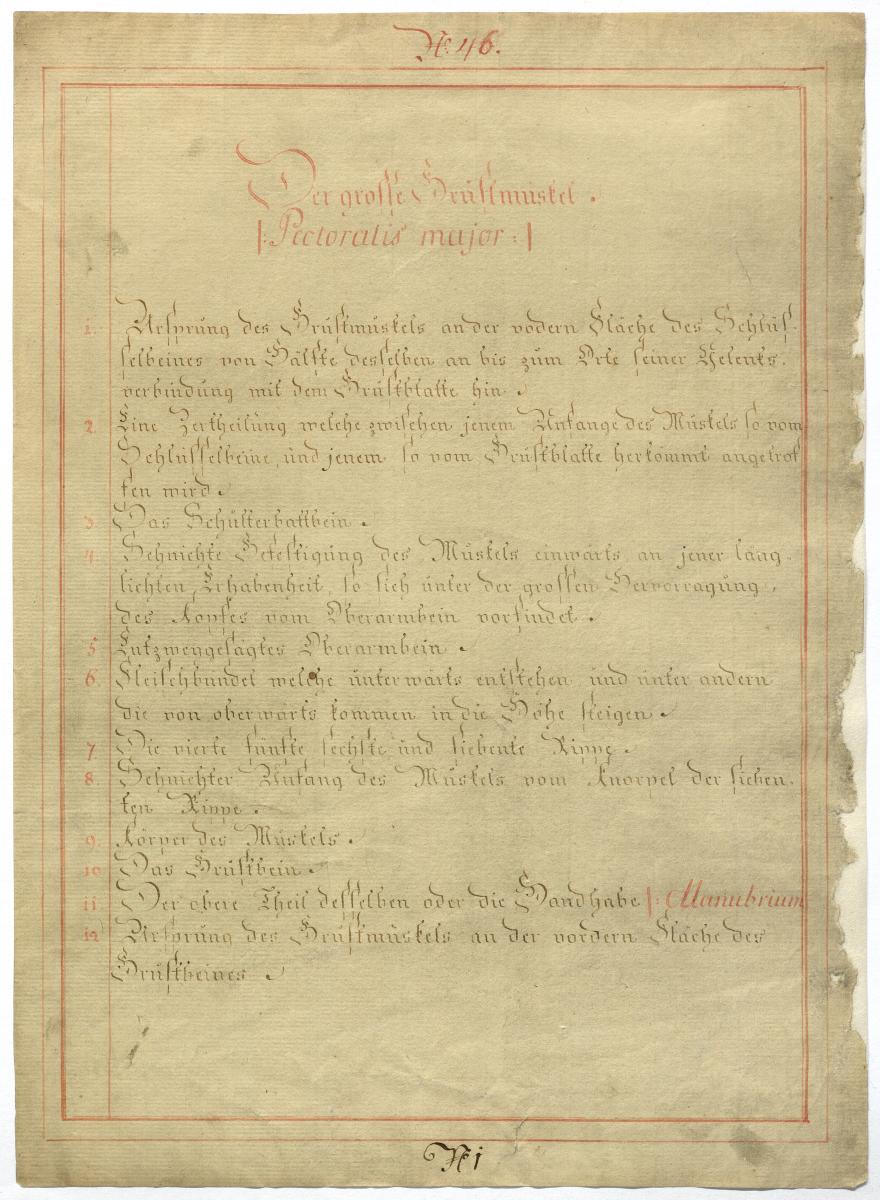 No. 46.
Der grosse Brustmuskel.
|: Pectoralis major :|
1. Ursprung des Brustmuskels an der vodern Fläche des Schlüs-
selbeines von Hälfte desselben an bis zum Orte seiner Gelenks-
verbindung mit dem Brustblatte hin.
2. Eine Zertheilung welche zwischen jenem Anfange des Muskels so vom
Schlüsselbeine, und jenem so vom Brustblatte herkommt angetrof
fen wird.
3. Das Schulterbattbein.
4. Sehnichte Befestigung des Muskels einwärts an jener läng-
lichten Erhabenheit, so sich unter der grossen Hervorragung,
des Kopfes vom Oberarmbein vorfindet.
5 Entzweygesägtes Oberarmbein.
6. Fleischbündel welche unterwärts entstehen und unter andern
die von oberwärts kommen in die Höhe steigen.
7 Die vierte fünfte sechste und siebente Rippe.
8. Sehnichter Anfang des Muskels vom Knorpel der sieben-
ten Rippe.
9. Körper des Muskels.
10 Das Brustbein.
11 Der obere Theil desselben oder die Handhabe |: Manubrium
12 Ursprung des Brustmuskels an der vordern Fläche des
Brustbeines.
N 1